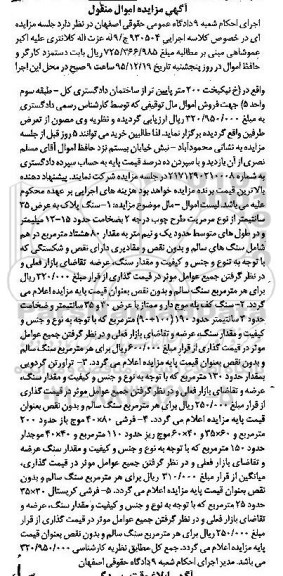 آگهی مزایده اموال منقول
اجرای احکام شعبه ۹ دادگاه عمومی حقوقی اصفهان در نظر دارد جلسه مزایده
ای در خصوص کلاسه اجرایی ۹۳۰۵۰۴ ج/۹ له عزت اله کلانتری علیه اکبر
عموشاهی مبنی بر مطالبه مبلغ ۷۲۵/۳۶۶/۹۸۵ ریال بابت دستمزد کارگر و
حافظ اموال در روز پنجشنبه تاریخ ۹۵/۱۲/۱۹ ساعت ۹ صبح در محل این اجرا
واقع در (خ نیکبخت ۲۰۰ متر پایین تر از ساختمان دادگستری کل – طبقه سوم
واحد ۵) جهت فروش اموال مال توقیفی که توسط کارشناس رسمی دادگستری
به مبلغ ۳۲۰/۹۵۰/۰۰۰ ریال ارزیابی گردیده و نظریه وی مصون از تعرض
طرفین واقع گردیده برگزار نماید. لذا طالبین خرید می توانند ۵ روز قبل از جلسه
مزایده به نشانی محمودآباد – نبش خیابان بیستم نزد حافظ اموال آقای مسلم
نصری از آن بازدید و با سپردن ده درصد قیمت پایه به حساب سپرده دادگستری
به شماره ۲۱۷۱۲۹۰۲۱۰۰۸ در جلسه مزایده شرکت نمایند. پیشنهاد دهنده
بالاترین قیمت برنده مزایده خواهد بود هزینه های اجرایی بر عهده محکوم
علیه می باشد. لیست اموال – مال موضوع مزایده: ۱– سنگ پلاک به عرض ۳۵
سانتیمتر از نوع مرمریت طرح چوب درجه ۲ بضخامت حدود ۱۵–۱۳ میلیمتر
و در طول های متوسط حدود یک و نیم متر به مقدار ۸۰ هشتاد مترمربع در هم
شامل سنگ های سالم و بدون نقص و مقادیری دارای نقص و شکستگی که
با توجه به تنوع و جنس و کیفیت و مقدار سنگ، عرضه و تقاضای بازار فعلی و
در نظر گرفتن جمیع عوامل موثر در قیمت گذاری از قرار مبلغ ۲۲۰/۰۰۰ ریال
برای هر مترمربع سنگ سالم و بدون نقص بعنوان قیمت پایه مزایده اعلام می
گردد. ۲– سنگ کف پله موج دار ممتاز با عرض ۳۵و۴۰ سانتیمتر و ضخامت
حدود ۳ سانتیمتر حدود ۱۹۰ (۱۰۰+۹۰) مترمربع که با توجه به نوع و جنس و
کیفیت و مقدار سنگ، عرضه و تقاضای بازار فعلی و در نظر گرفتن جمیع عوامل
موثر در قیمت گذاری از قرار مبلغ ۶۰۰/۰۰۰ ریال برای هر مترمربع سنگ سالم
و بدون نقص بعنوان قیمت پایه مزایده اعلام می گردد. ۳– تراورتن گردویی
بمقدار حدود ۱۳۰ مترمربع که با توجه به نوع و جنس و کیفیت و مقدار سنگ،
عرضه و تقاضای بازار فعلی و در نظر گرفتن جمیع عوامل موثر در قیمت گذاری
از قرار مبلغ ۲۵۰/۰۰۰ ریال برای هر مترمربع سنگ سالم و بدون نقص بعنوان
قیمت پایه مزایده اعلام می گردد. ۴– فرشی ۸۰×۴۰ موج باز حدود ۲۰۰
مترمربع و ۶۰×۳۵ و ۶۰×۴۰ موج ریز حدود ۱۱۰ مترمربع و ۴۰×۴۰ موجدار
حدود ۱۵۰ مترمربع که با توجه به نوع و جنس و کیفیت و مقدار سنگ عرضه
و تقاضای بازار فعلی و در نظر گرفتن جمیع عوامل موثر در قیمت گذاری،
میانگین از قرار مبلغ ۳۱۰/۰۰۰ ریال برای هر مترمربع سنگ سالم و بدون
نقص بعنوان قیمت پایه مزایده اعلام می گردد. ۵– فرشی کریستال ۳۰×۳۵
حدود ۲۵ مترمربع که با توجه به نوع و جنس و کیفیت و مقدار سنگ، عرضه و
تقاضای بازار فعلی و در نظر گرفتن جمیع عوامل موثر در قیمت گذاری از قرار
مبلغ ۲۵۰/۰۰۰ ریال برای هر مترمربع سنگ سالم و بدون نقص بعنوان قیمت
پایه مزایده اعلام می گردد. جمع کل مطابق نظریه کارشناسی ۳۲۰/۹۵۰/۰۰۰
می باشد. مدیر اجرای احکام شعبه ۹ دادگاه حقوقی اصفهان